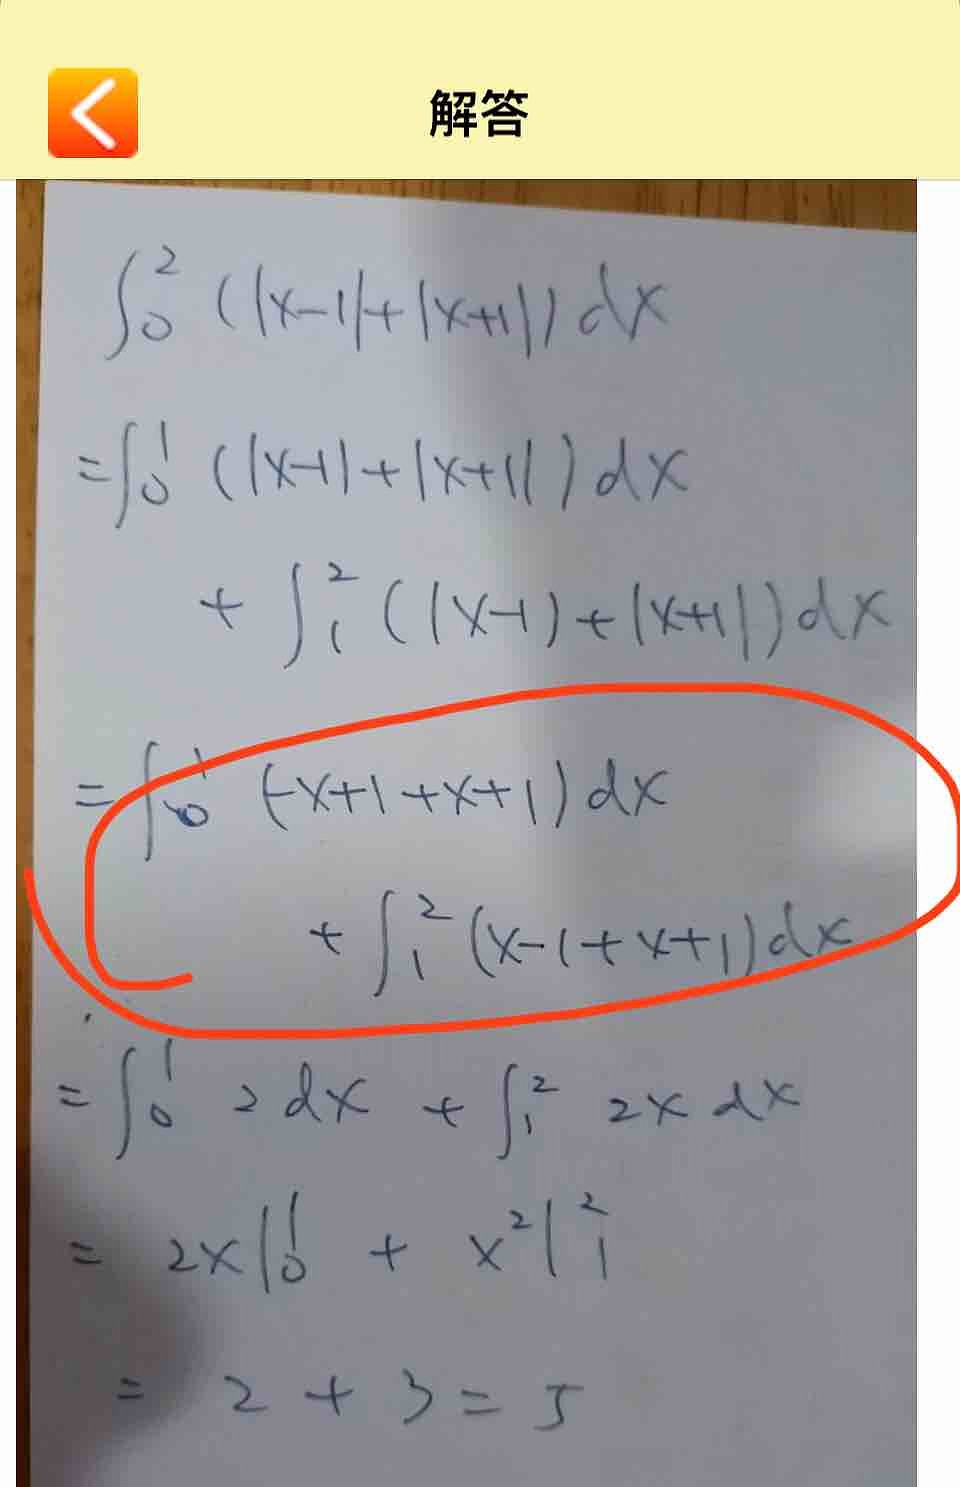 解答
∫₀² (|x-1|+|x+1|) dx
=∫₀¹ (|x-1|+|x+1|) dx
+ ∫₁² (|x-1)+|x+1|) dx
= ∫₀¹ (-x+1+x+1) dx
+ ∫₁² (x-1+x+1) dx
= ∫₀¹ 2 dx + ∫₁² 2x dx
= 2x|₀¹ + x²|₁²
= 2 + 3 = 5